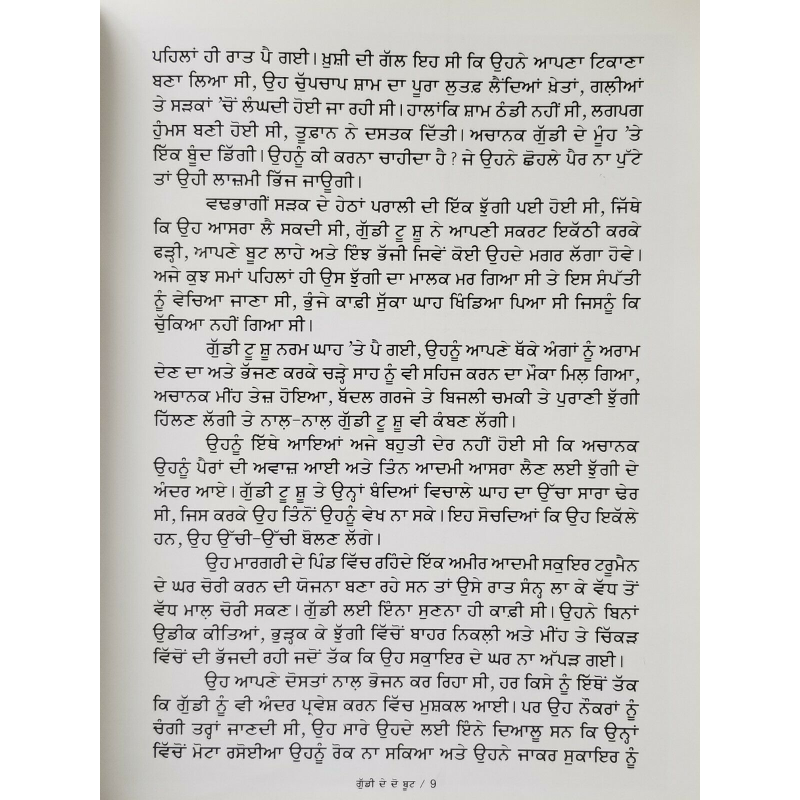 ਪਹਿਲਾਂ ਹੀ ਰਾਤ ਪੈ ਗਈ। ਖ਼ੁਸ਼ੀ ਦੀ ਗੱਲ ਇਹ ਸੀ ਕਿ ਉਹਨੇ ਆਪਣਾ ਟਿਕਾਣਾ
ਬਣਾ ਲਿਆ ਸੀ, ਉਹ ਚੁੱਪਚਾਪ ਸ਼ਾਮ ਦਾ ਪੂਰਾ ਲੁਤਫ਼ ਲੈਂਦਿਆਂ ਖ਼ੇਤਾਂ, ਗਲ਼ੀਆਂ
ਤੇ ਸੜਕਾਂ ’ਚੋਂ ਲੰਘਦੀ ਹੋਈ ਜਾ ਰਹੀ ਸੀ। ਹਾਲਾਂਕਿ ਸ਼ਾਮ ਠੰਡੀ ਨਹੀਂ ਸੀ, ਲਗਪਗ
ਹੁੰਮਸ ਬਣੀ ਹੋਈ ਸੀ, ਤੂਫ਼ਾਨ ਨੇ ਦਸਤਕ ਦਿੱਤੀ। ਅਚਾਨਕ ਗੁੱਡੀ ਦੇ ਮੂੰਹ ’ਤੇ
ਇੱਕ ਬੂੰਦ ਡਿੱਗੀ। ਉਹਨੂੰ ਕੀ ਕਰਨਾ ਚਾਹੀਦਾ ਹੈ? ਜੇ ਉਹਨੇ ਛੋਹਲੇ ਪੈਰ ਨਾ ਪੁੱਟੇ
ਤਾਂ ਉਹੀ ਲਾਜ਼ਮੀ ਭਿੱਜ ਜਾਊਗੀ।
ਵਢਭਾਗੀਂ ਸੜਕ ਦੇ ਹੇਠਾਂ ਪਰਾਲੀ ਦੀ ਇੱਕ ਝੁੱਗੀ ਪਈ ਹੋਈ ਸੀ, ਜਿੱਥੇ
ਕਿ ਉਹ ਆਸਰਾ ਲੈ ਸਕਦੀ ਸੀ, ਗੁੱਡੀ ਟੂ ਸ਼ੂ ਨੇ ਆਪਣੀ ਸਕਰਟ ਇਕੱਠੀ ਕਰਕੇ
ਫੜ੍ਹੀ, ਆਪਣੇ ਬੂਟ ਲਾਹੇ ਅਤੇ ਇੰਝ ਭੱਜੀ ਜਿਵੇਂ ਕੋਈ ਉਹਦੇ ਮਗਰ ਲੱਗਾ ਹੋਵੇ।
ਅਜੇ ਕੁਝ ਸਮਾਂ ਪਹਿਲਾਂ ਹੀ ਉਸ ਝੁੱਗੀ ਦਾ ਮਾਲਕ ਮਰ ਗਿਆ ਸੀ ਤੇ ਇਸ ਸੰਪੱਤੀ
ਨੂੰ ਵੇਚਿਆ ਜਾਣਾ ਸੀ, ਭੁੰਜੇ ਕਾਫ਼ੀ ਸੁੱਕਾ ਘਾਹ ਖਿੰਡਿਆ ਪਿਆ ਸੀ ਜਿਸਨੂੰ ਕਿ
ਚੁੱਕਿਆ ਨਹੀਂ ਗਿਆ ਸੀ।
ਗੁੱਡੀ ਟੂ ਸ਼ੂ ਨਰਮ ਘਾਹ ’ਤੇ ਪੈ ਗਈ, ਉਹਨੂੰ ਆਪਣੇ ਥੱਕੇ ਅੰਗਾਂ ਨੂੰ ਅਰਾਮ
ਦੇਣ ਦਾ ਅਤੇ ਭੱਜਣ ਕਰਕੇ ਚੜ੍ਹੇ ਸਾਹ ਨੂੰ ਵੀ ਸਹਿਜ ਕਰਨ ਦਾ ਮੌਕਾ ਮਿਲ਼ ਗਿਆ,
ਅਚਾਨਕ ਮੀਂਹ ਤੇਜ਼ ਹੋਇਆ, ਬੱਦਲ ਗਰਜੇ ਤੇ ਬਿਜਲੀ ਚਮਕੀ ਤੇ ਪੁਰਾਣੀ ਝੁੱਗੀ
ਹਿੱਲਣ ਲੱਗੀ ਤੇ ਨਾਲ਼-ਨਾਲ਼ ਗੁੱਡੀ ਟੂ ਸ਼ੂ ਵੀ ਕੰਬਣ ਲੱਗੀ।
ਉਹਨੂੰ ਇੱਥੇ ਆਇਆਂ ਅਜੇ ਬਹੁਤੀ ਦੇਰ ਨਹੀਂ ਹੋਈ ਸੀ ਕਿ ਅਚਾਨਕ
ਉਹਨੂੰ ਪੈਰਾਂ ਦੀ ਅਵਾਜ਼ ਆਈ ਅਤੇ ਤਿੰਨ ਆਦਮੀ ਆਸਰਾ ਲੈਣ ਲਈ ਝੁੱਗੀ ਦੇ
ਅੰਦਰ ਆਏ। ਗੁੱਡੀ ਟੂ ਸ਼ੂ ਤੇ ਉਨ੍ਹਾਂ ਬੰਦਿਆਂ ਵਿਚਾਲੇ ਘਾਹ ਦਾ ਉੱਚਾ ਸਾਰਾ ਢੇਰ
ਸੀ, ਜਿਸ ਕਰਕੇ ਉਹ ਤਿੰਨੋਂ ਉਹਨੂੰ ਵੇਖ ਨਾ ਸਕੇ। ਇਹ ਸੋਚਦਿਆਂ ਕਿ ਉਹ ਇਕੱਲੇ
ਹਨ, ਉਹ ਉੱਚੀ-ਉੱਚੀ ਬੋਲਣ ਲੱਗੇ।
ਉਹ ਮਾਰਗਰੀ ਦੇ ਪਿੰਡ ਵਿੱਚ ਰਹਿੰਦੇ ਇੱਕ ਅਮੀਰ ਆਦਮੀ ਸਕੁਇਰ ਟਰੂਮੈਨ
ਦੇ ਘਰ ਚੋਰੀ ਕਰਨ ਦੀ ਯੋਜਨਾ ਬਣਾ ਰਹੇ ਸਨ ਤਾਂ ਉਸੇ ਰਾਤ ਸੰਨ੍ਹ ਲਾ ਕੇ ਵੱਧ ਤੋਂ
ਵੱਧ ਮਾਲ਼ ਚੋਰੀ ਸਕਣ। ਗੁੱਡੀ ਲਈ ਇੰਨਾ ਸੁਣਨਾ ਹੀ ਕਾਫ਼ੀ ਸੀ। ਉਹਨੇ ਬਿਨਾਂ
ਉਡੀਕ ਕੀਤਿਆਂ, ਭੁੜ੍ਹਕ ਕੇ ਝੁੱਗੀ ਵਿੱਚੋਂ ਬਾਹਰ ਨਿਕਲ਼ੀ ਅਤੇ ਮੀਂਹ ਤੇ ਚਿੱਕੜ
ਵਿੱਚੋਂ ਦੀ ਭੱਜਦੀ ਰਹੀ ਜਦੋਂ ਤੱਕ ਕਿ ਉਹ ਸਕੁਾਇਰ ਦੇ ਘਰ ਨਾ ਅੱਪੜ ਗਈ।
ਉਹ ਆਪਣੇ ਦੋਸਤਾਂ ਨਾਲ਼ ਭੋਜਨ ਕਰ ਰਿਹਾ ਸੀ, ਹਰ ਕਿਸੇ ਨੂੰ ਇੱਥੋਂ ਤੱਕ
ਕਿ ਗੁੱਡੀ ਨੂੰ ਵੀ ਅੰਦਰ ਪ੍ਰਵੇਸ਼ ਕਰਨ ਵਿੱਚ ਮੁਸ਼ਕਲ ਆਈ। ਪਰ ਉਹ ਨੌਕਰਾਂ ਨੂੰ
ਚੰਗੀ ਤਰ੍ਹਾਂ ਜਾਣਦੀ ਸੀ, ਉਹ ਸਾਰੇ ਉਹਦੇ ਲਈ ਇੰਨੇ ਦਿਆਲੂ ਸਨ ਕਿ ਉਨ੍ਹਾਂ
ਵਿੱਚੋਂ ਮੋਟਾ ਰਸੋਈਆ ਉਹਨੂੰ ਰੋਕ ਨਾ ਸਕਿਆ ਅਤੇ ਉਹਨੇ ਜਾਕਰ ਸੁਕਾਇਰ ਨੂੰ
ਗੁੱਡੀ ਦੇ ਦੋ ਬੂਟ / 9